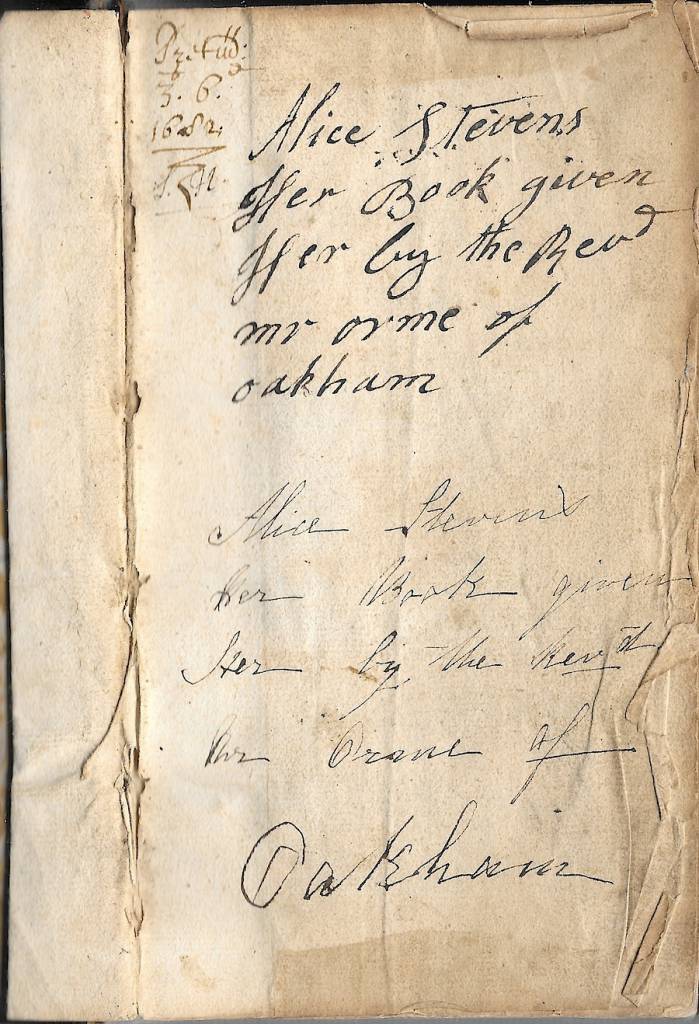 Pret
3. 6.
1682,
Alice Stevens
Her Book given
Her by the Revd
mr orme of
oakham
Alice Stevens
her Book given
Her by the Revd
Mr Orme of
Oakham